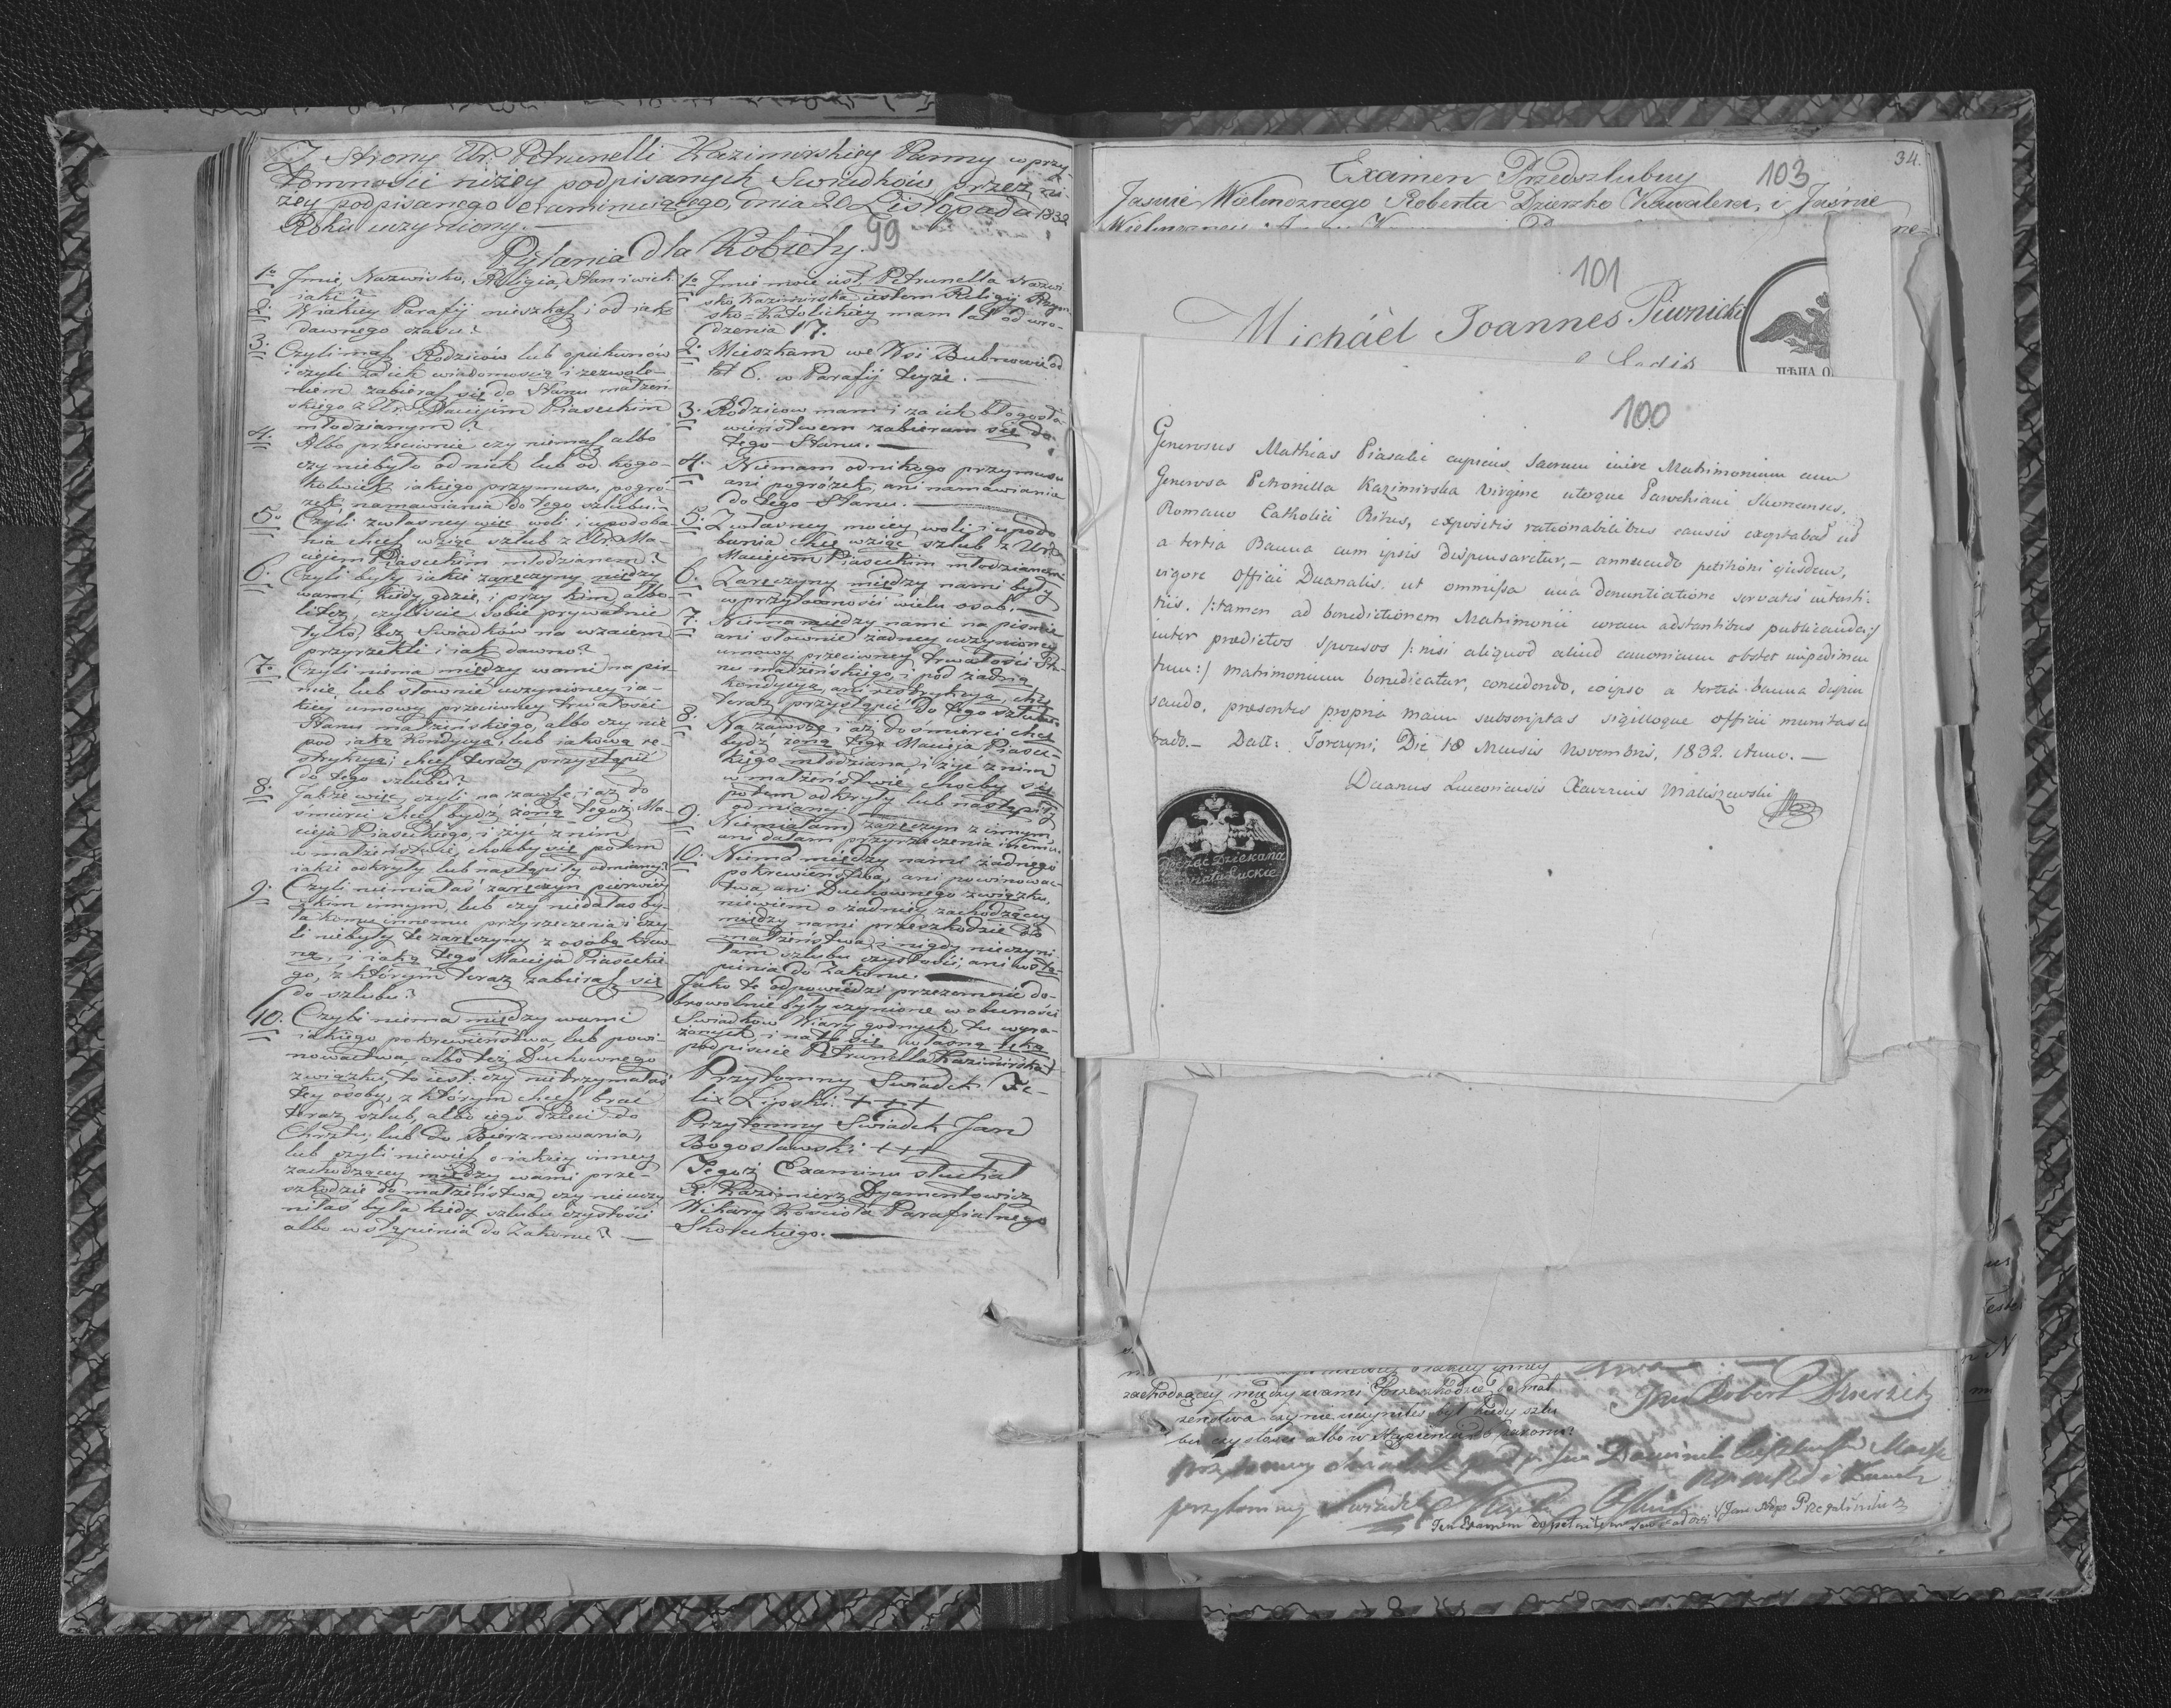 Z Strony Ur: Petrunelli Kazimirskiey Panny w przy-
tomności niżey podpisanych Swiadków przez ni-
żey podpisanego Examinuiącego, dnia 20 Listopada 1832
Roku uczyniony.
99
Pytania dla Kobiety.
1o Jmie, Nazwisko, Religia, Stan i wiek
iaki?
2. W iakiey Parafij mieszkasz i od iak
dawnego czasu?
3. Czyli masz Rodziców lub opiekunów
i czyli za ich wiadomością i zezwole-
niem zabierasz się do Stanu małżeń
skiego z Ur: Maciejem Piaseckim
młodzianym?
4. Albo przeciwnie czy niemasz albo
czy niebyło od nich lub od kogo-
kolwiek iakiego przymusu, pogró-
żek, namawiania do tego szlubu?
5. Czyli zwłasney więc woli i upodoba-
nia chcesz wziąć szlub z Ur: Ma-
ciejem Piaseckim młodzianem?
6. Czyli były iakie zaręczyny między
wami, kiedy, gdzie, i przy kim albo
liteż, czyliście sobie prywatnie
tylko bez Swiadków na wzaiem
przyrzekli i iak dawno?
7. Czyli niema między wami na piś-
mie, lub słownie uczynioney ia-
kiey umowy przeciwney trwałości
Stanu małżeńskiego, albo czy nie
pod iaką kondycyą, lub iakową re-
strykcyą, chcesz teraz przystąpić
do tego szlubu?
8. Także więc, czyli na zawsze i aż do
śmierci chcesz bydź żoną tegoż Ma-
cieja Piaseckiego, i żyć z nim
w małżeństwie, choćby się potem
iakie odkryły lub nastąpiły odmiany?
9. Czyli niemiałaś zaręczyn pierwiey
z kim innym, lub czy niedałaś by-
ła komu innemu przyrzeczenia i czy-
li niebyły te zaręczyny z osobą krew-
ną, i iaką tego Macieja Piaseckie-
go, z którym teraz zabierasz się
do szlubu?
10. Czyli niema między wami
iakiego pokrewieństwa, lub powi-
nowactwa, albo też Duchownego
związku, to iest: czy nietrzymałaś
tey osoby, z którym chcesz brać
teraz szlub, albo iego dzieci do
Chrztu, lub do Bierzmowania,
lub czyli niewiesz o iakiey inney
zachodzącey między wami prze-
szkodzie do małżeństwa, czy nieuczy
niłaś była kiedy szlubu czystości
albo wstąpienia do Zakonu?
1o Jmie moie iest Petrunella Nazwi
sko, Kazimirska iestem Religij Rzym-
sko-Katolickiey mam lat od uro-
dzenia 17.
2. Mieszkam we Wsi Bubnowie od
lat 6. w Parafij teyże.
3. Rodziców mam i za ich błogosła-
wieństwem zabieram się do
tego Stanu.
4. Niemam od nikogo przymusu
ani pogróżek, ani namawiania
do tego Stanu.
5. Z własney moiey woli i upodo
bania chcę wziąć szlub z Ur:
Maciejem Piaseckim młodzianem
6. Zaręczyny między nami były
w przytomności wielu osób.
7. Niema między nami na piśmie
ani słownie żadney uczynioney
umowy przeciwney trwałości Sta-
nu małżeńskiego, i pod żadną
kondycyą, ani restrykcyą, chcę
teraz przystąpić do tego szlubu
8. Na zawsze i aż do śmierci chcę
bydź żoną tego Macieja Piasec-
kiego młodziana, i żyć z nim
w małżeństwie choćby się
potem odkryły lub nastąpiły
odmiany.
9. Niemiałam zaręczyn z innym
ani dałam przyrzeczenia innemu.
10. Niema między nami żadnego
pokrewieństwa, ani powinowac-
twa, ani Duchownego związku,
niewiem o żadney zachodzącey
między nami przeszkodzie do
małżeństwa, i nigdy nieczyni
łam szlubu czystości, ani wstą-
pienia do Zakonu.
Jako te odpowiedzi przezemnie do-
browolnie były czynione w obecności
Swiadków Wiary godnych, tu wyra-
żonych i na to się własną ręką
podpisuię Petrunella Kazimirska
Przytomny Swiadek Fe-
lix Lipski +++
Przytomny Swiadek Jan
Bogosławski +++
Tegoż Examinu słuchał
X. Kazimierz Dyamentowicz
Wikary Kościoła Parafialnego
Skoruckiego.
34.
Examen Przedszlubny
103
Jaśnie Wielmożnego Roberta Dzierżko Kawalera, i Jaśnie
101
Michäel Joannes Piwnicki
ЦѢНА
100
Generosus Mathias Piasecki cupiens Sacrum inire Matrimonium cum
Generosa Petronilla Kazimirska Virgine uterque Parochiani Skorucenses,
Romano Catholici Ritus, expositis rationabilibus causis exoptabat ut
a tertia Banna cum ipsis dispensaretur, annuendo petitioni ejusdem,
vigore Officii Decanalis. ut ommissa una denuntiatione servatis
tiis. /:tamen ad benedictionem Matrimonii coram adstantibus publicanda:/
inter praedictos sponsos /: nisi aliquod aliud canonicum obstet impedimen
tum:/ matrimonium benedicatur, concedendo, eoipso a tertia banna dispen
sando, praesentes propria manu subscriptas sigilloque officii munitas
trado. Datt: Torczyni, Die 18 Mensis Novembris, 1832. Anno.
Decanus Luceoriensis Xaverius Maliszewski
Dziekana
Łuckie
zachodzącey między wami przeszkodzie do mał
żeństwa czy nie uczyniłeś był kiedy szlu
bu czystości albo wstąpienia do zakonu?
Jan Robert Dzierżek
przytomny Świadek
Ten Examen dopełniłem